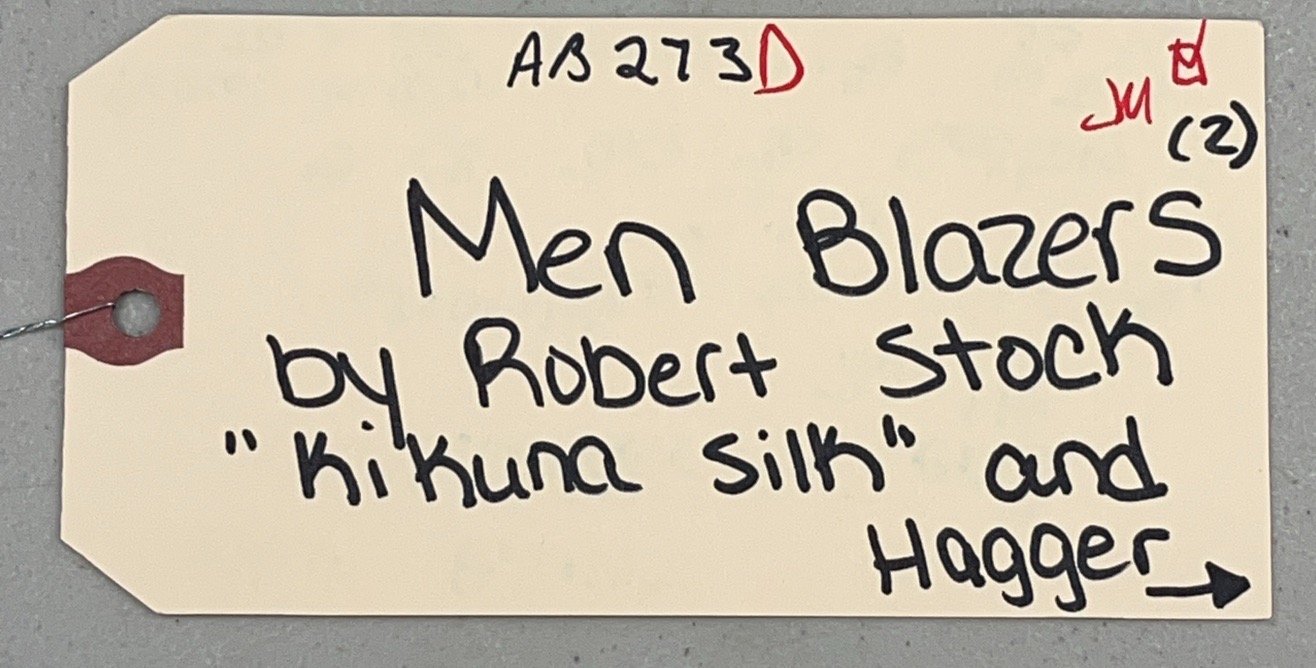 AB273D
JM
(2)
Men Blazers
by Robert Stock
"Kikuna Silk" and
Hagger →